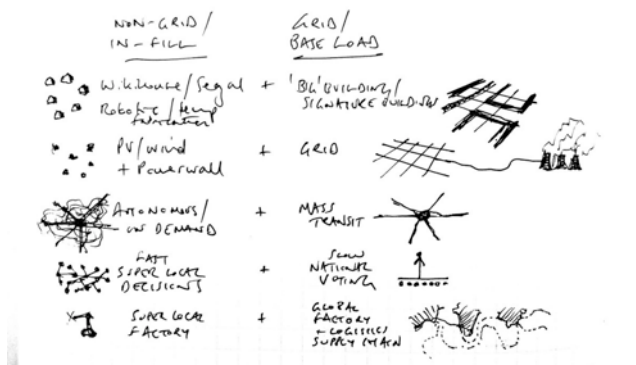 NON-GRID/
IN-FILL
GRID/
BASE LOAD
WikiHouse/Segal
Robotic/temp
fabrication
+
'BIG' BUILDING/
SIGNATURE BUILDING
PV/wind
+ Powerwall
+
GRID
AUTONOMOUS/
ON DEMAND
+
MASS
TRANSIT
FAST
SUPER LOCAL
DECISIONS
+
SLOW
NATIONAL
VOTING
SUPER LOCAL
FACTORY
+
GLOBAL
FACTORY
+ LOGISTICS
SUPPLY CHAIN